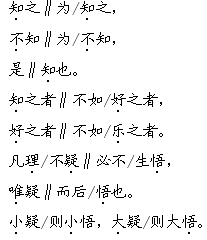 知之∥为/知之，
不知∥为/不知，
是∥知也。
知之者∥不如/好之者，
好之者∥不如/乐之者。
凡理/不疑∥必不/生悟，
唯疑∥而后/悟也。
小疑/则小悟，大疑/则大悟。